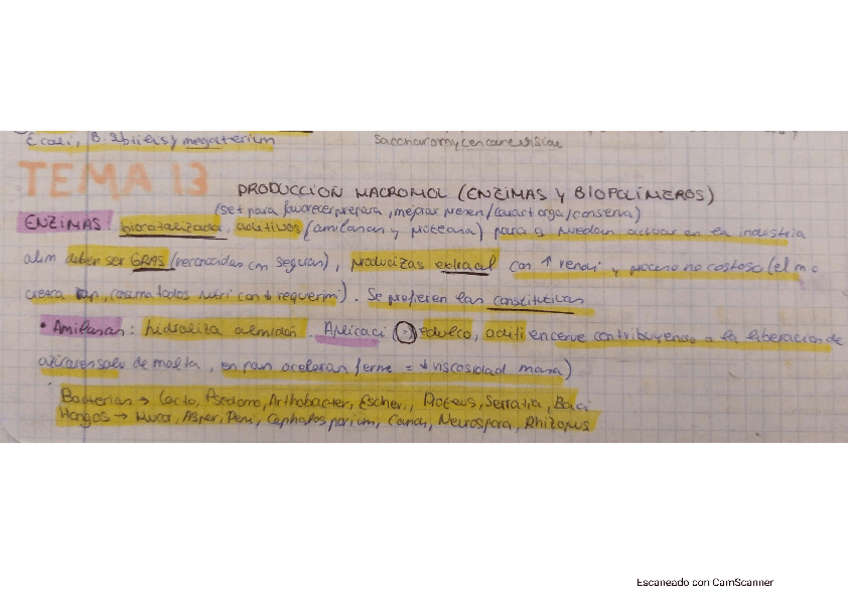 E coli, B. Subtilis y megaterium Saccharomyces cerevisiae
TEMA 13 PRODUCCION MACROMOL (ENZIMAS Y BIOPOLÍMEROS)
(se + para favorecer prepara, mejorar presen/caract orga/conserva)
ENZIMAS: biocatalizador, aditivos (amilasas y proteasa) para q puedan actuar en la industria
alim deben ser GRAS (reconocidas con seguras), producizas extracel con ↑ rendi y proceso no costoso (el mo
crezca rap, cosma todos nutri con ↓ requerimi). Se prefieren las constitutivas
• Amilasas: hidroliza almidón. Aplicaci edulco, aditi en cerve contribuyendo a la liberacion de
azucares malo de malta, en pan aceleran ferme = ↓ viscosidad masa)
Bacterias → Lacto, Pseudomo, Arthobacter, Escher, Proteus, Serratia, Baci
Hongos → Mucor, Asper, Peni, Cephalosporium, Candi, Neurospora, Rhizopus
Escaneado con CamScanner